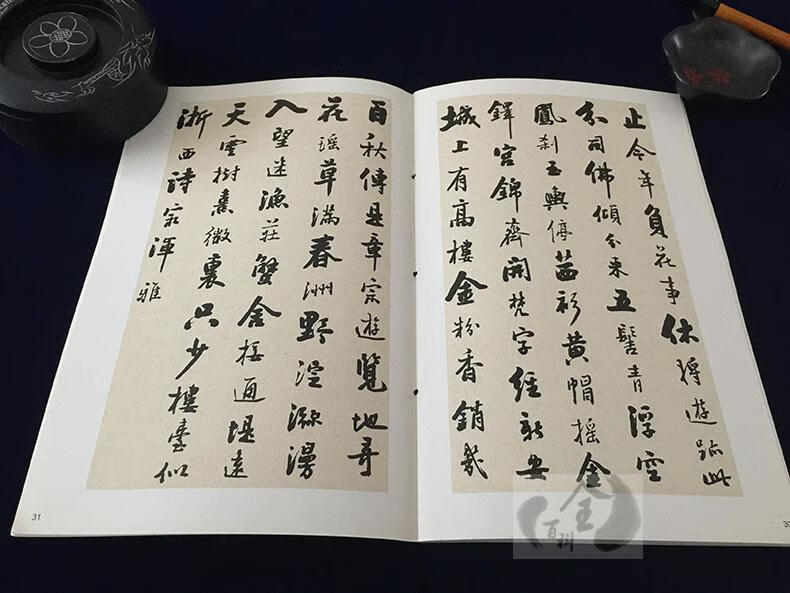 止今年負花事休將遊跡此
分司佛傾分來五髻青浮空
鳳刹玉輿停茜衫黃帽搖金
鐸宮錦齋開梵字經新安
城上有高樓金粉香銷幾
百秋傳是章宗遊覽地哥
花瑤草滿春洲野淀瀰漫
入望迷漁莊蟹舍接通堤遠
天雲樹熹微裏只少樓臺似
浙西詩宗渾雅
31
30
百川